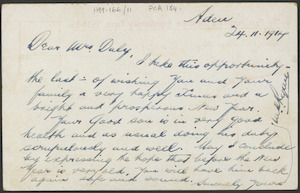 1199-166/11
Aden
24.11.1914
Dear Mrs Daly,
I take this opportunity-
the last - of wishing you and your
family a very happy Xmas and a
bright and prosperous New Year.
Your Good son is in very good
health and as usual doing his duty
scrupulously and well. May I conclude
by expressing the hope that before the New
Year is very old. You will have him back
again safe and sound. Sincerely yours